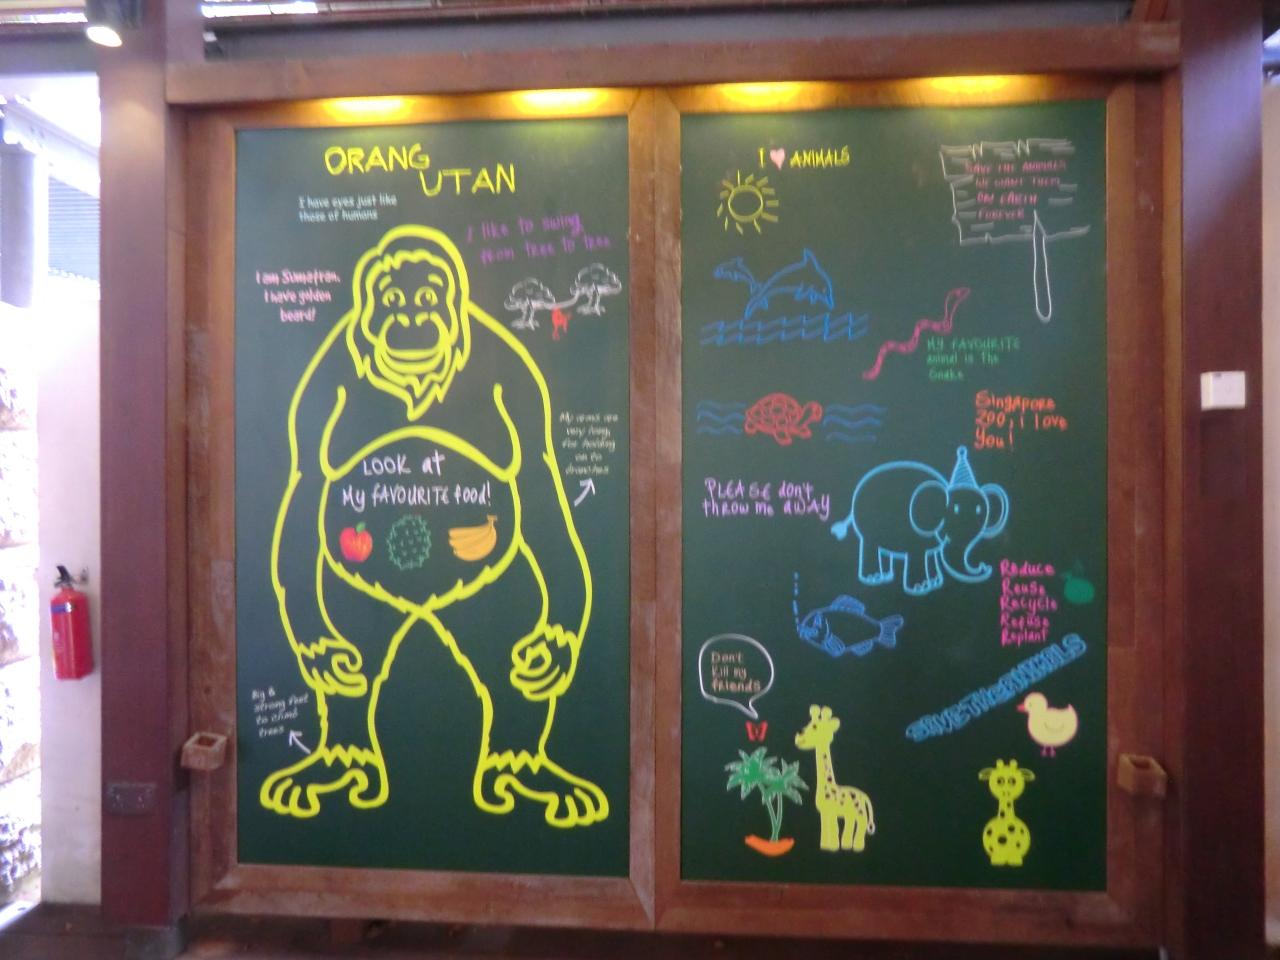 ORANG
UTAN
I have eyes just like
those of humans
I like to swing
from tree to tree
I am Sumatran.
I have golden
beard!
My arms are
very long
for holding
on to
branches
LOOK at
My FAVOURITE food!
Big &
strong feet
to climb
trees
I ♥ ANIMALS
SAVE THE ANIMALS
WE WANT THEM
ON EARTH
FOREVER
MY FAVOURITE
animal is The
Snake
Singapore
Zoo, I love
You!
PLEASE don't
throw me away
Reduce
Reuse
Recycle
Refuse
Replant
SAVE THE ANIMALS
Don't
kill my
friends